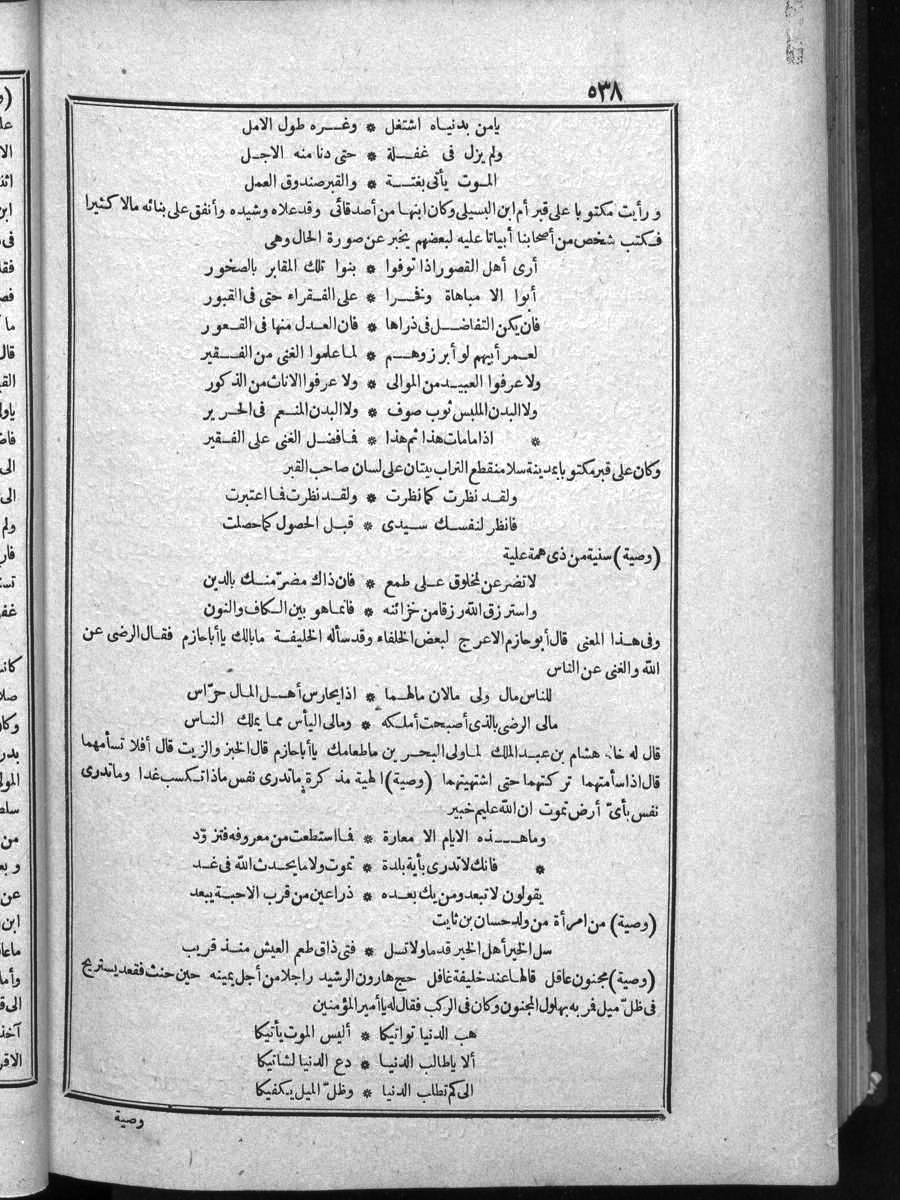 ٥٣٨
يامن بدنياه اشتغل * وغره طول الامل
ولم يزل فى غفلة * حتى دنا منه الاجل
الموت يأتى بغتة * والقبر صندوق العمل
ورأيت مكتوبا على قبر أم ابن البسيلى وكان ابنها من أصدقائى وقد علاه وشيده وأنفق على بنائه مالا كثيرا
فكتب شخص من أصحابنا أبياتا عليه لبعضهم يخبر عن صورة الحال وهى
أرى أهل القصور اذا توفوا * بنوا تلك المقابر بالصخور
أبوا الا مباهاة وفخرا * على الفقراء حتى فى القبور
فان يكن التفاضل فى ذراها * فان العدل منها فى القعور
لعمر أبيهم لو أبرزوهم * لما علموا الغنى من الفقير
ولا عرفوا العبيد من الموالى * ولا عرفوا الاناث من الذكور
ولا البدن الملبس ثوب صوف * ولا البدن المنعم فى الحرير
* اذا مامات هذا ثم هذا * فما فضل الغنى على الفقير
وكان على قبر مكتوبا بمدينة سلا منقطع التراب بيتان على لسان صاحب القبر
ولقد نظرت كما نظرت * ولقد نظرت فما اعتبرت
فانظر لنفسك سيدى * قبل الحصول كما حصلت
(وصية) سنية من ذى همة علية
لا تضرعن لمخلوق على طمع * فان ذاك مضر منك بالدين
واسترزق الله رزقا من خزائنه * فانما هو بين الكاف والنون
وفى هذا المعنى قال أبو حازم الاعرج لبعض الخلفاء وقد سأله الخليفة مامالك يا أبا حازم فقال الرضى عن
الله والغنى عن الناس
للناس مال ولى مالان مالهما * اذا يحارس أهل المال حرّاس
مالى الرضى بالذى أصبحت أملكه * ومالى اليأس مما يملك الناس
قال له هشام بن عبد الملك لما ولى البحر بن ماطعامك يا أبا حازم قال الخبز والزيت قال أفلا تسأمهما
قال اذا سأمتهما تركتهما حتى اشتهيتهما (وصية) الهية مذكرة ماتدرى نفس ماذا تكسب غدا وماتدرى
نفس بأىّ أرض تموت ان الله عليم خبير
وما هذه الايام الا معارة * فما استطعت من معروفه فتزوّد
* فانك لا تدرى بأية بلدة * تموت ولا ما يحدث الله فى غد
يقولون لا تبعد ومن يك بعده * ذراعين من قرب الاحبة يبعد
(وصية) من امرأة من ولد حسان بن ثابت
سل الخير أهل الخير قدما ولا تسل * فتى ذاق طعم العيش منذ قريب
(وصية) مجنون عاقل قالها عند خليفة غافل حج هارون الرشيد راجلا من أجل يمينه حين حنث فقعد يستريح
فى ظلّ ميل فمر به بهلول المجنون وكان فى الركب فقال له يا أمير المؤمنين
هب الدنيا تواتيكا * أليس الموت يأتيكا
ألا ياطالب الدنيا * دع الدنيا لشانيكا
الى كم تطلب الدنيا * وظلّ الميل يكفيكا
وصية